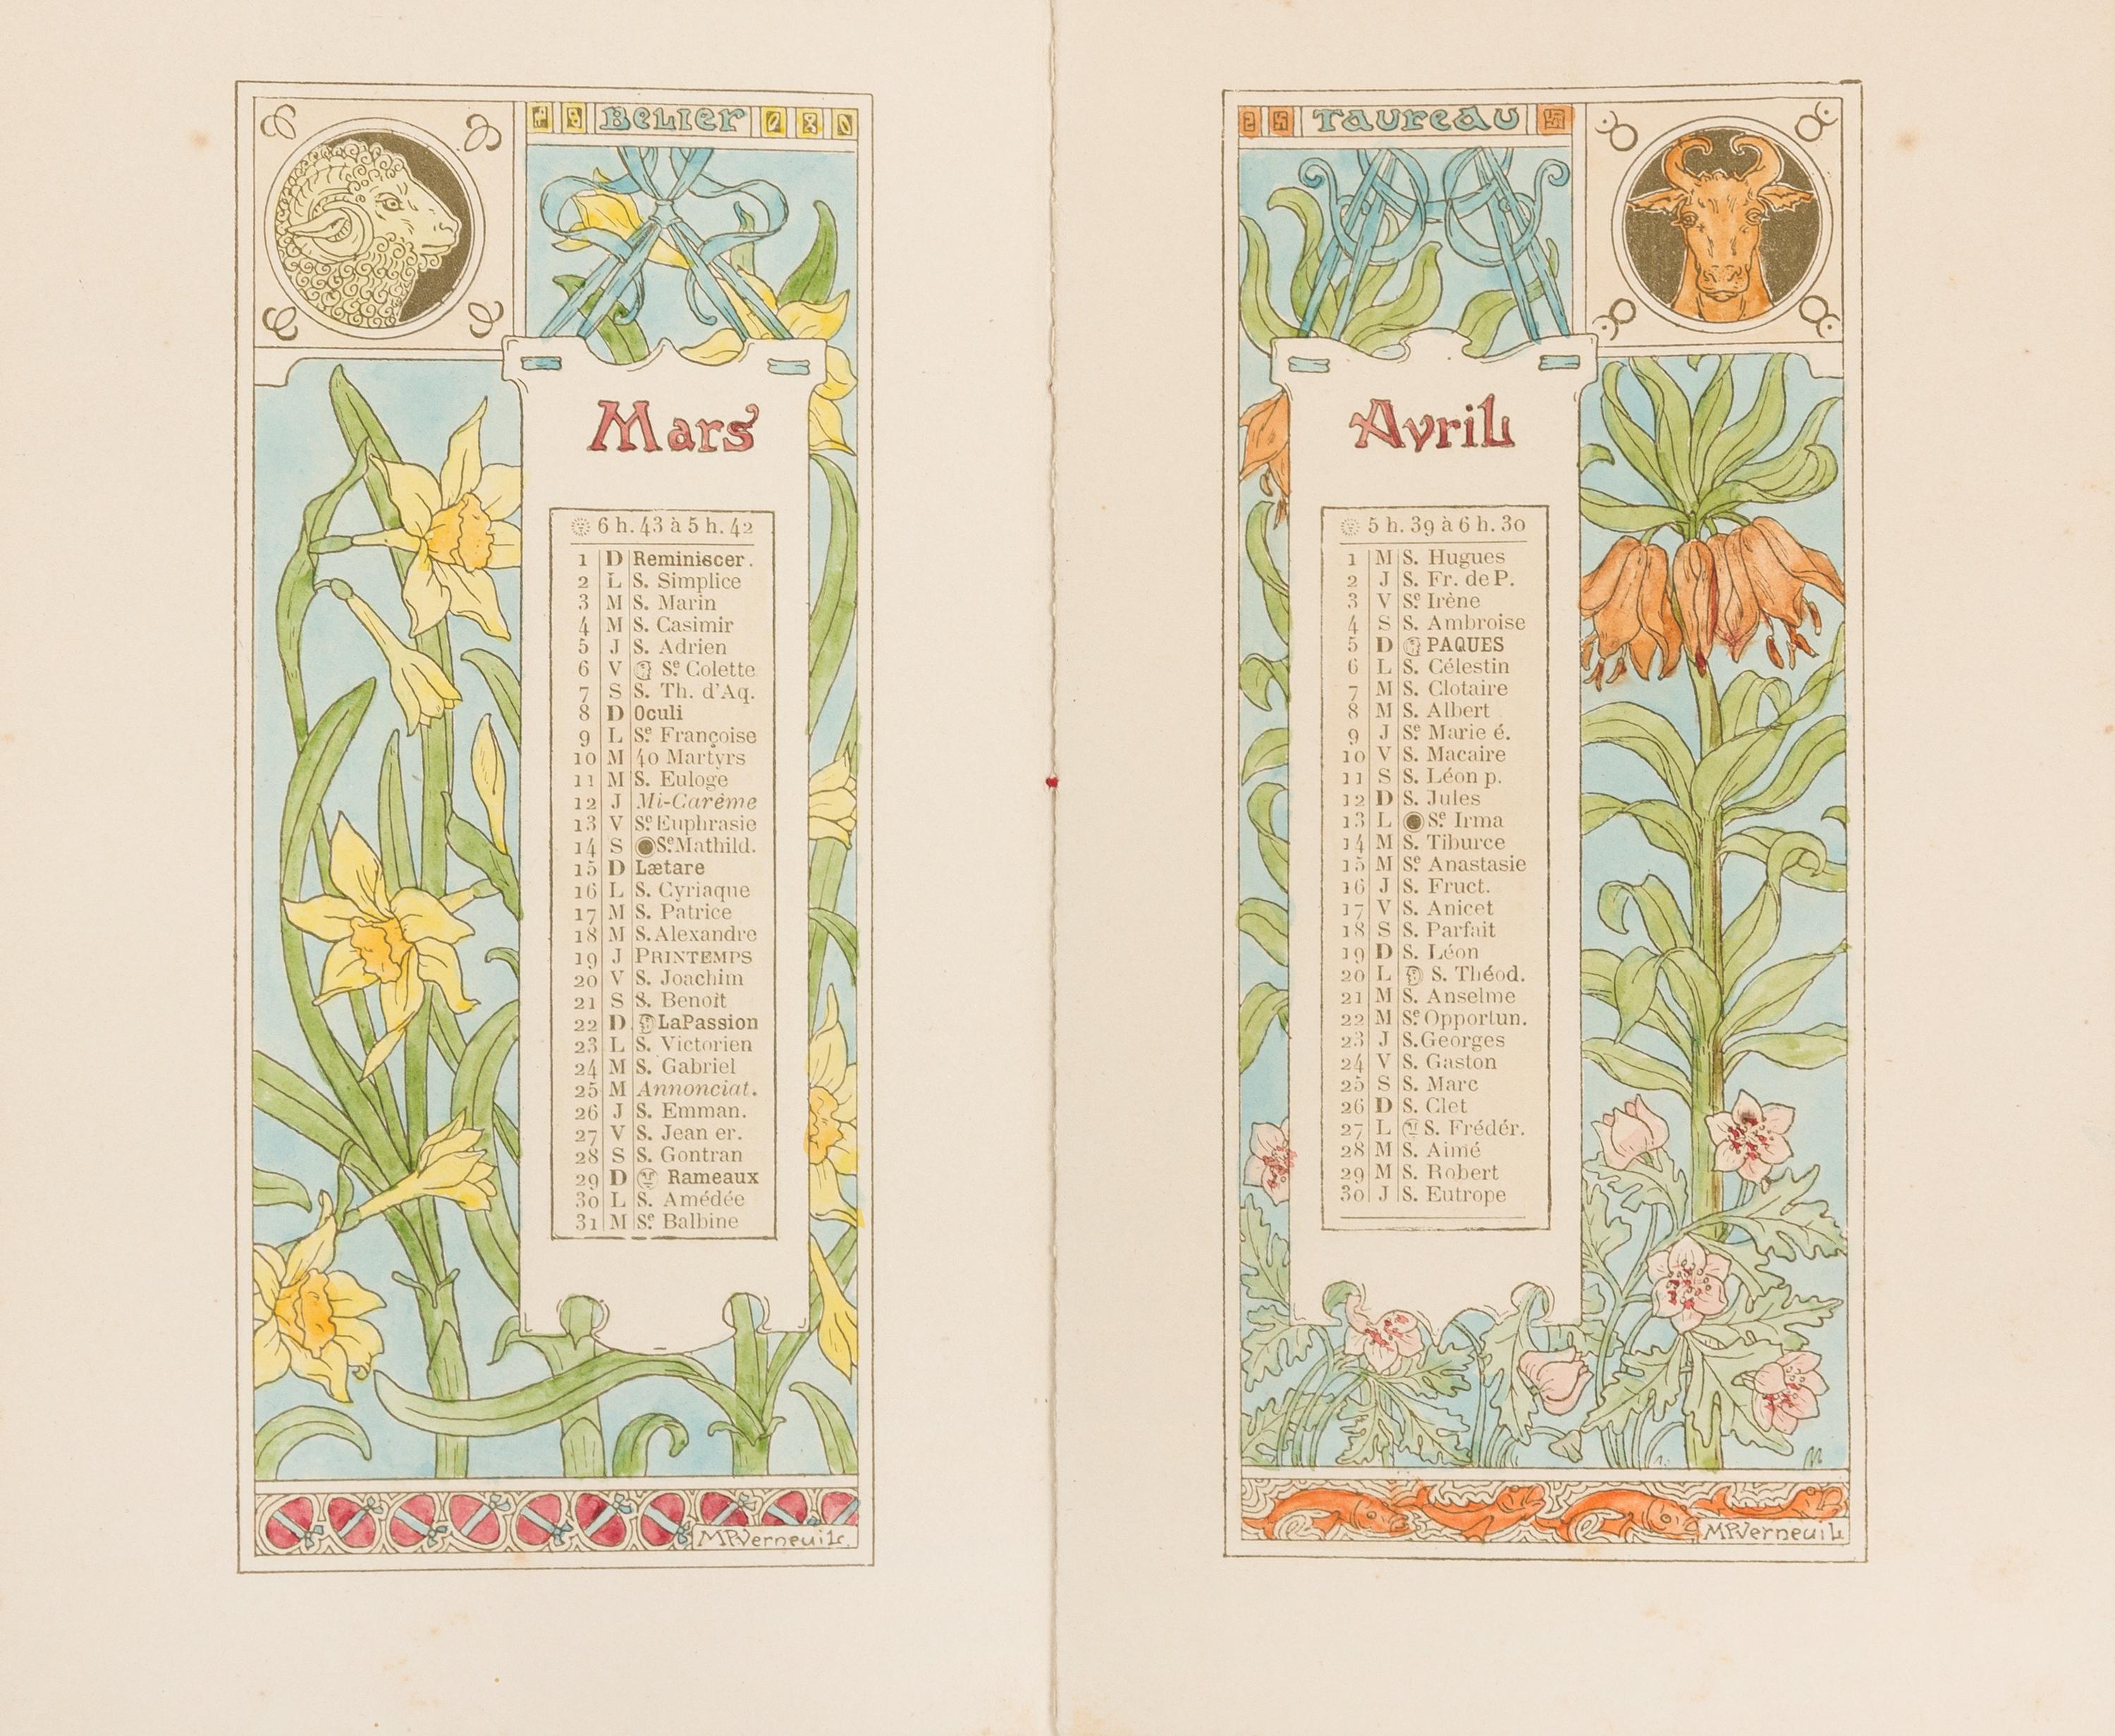 Belier
Mars
6 h. 43 à 5 h. 42
1 D Reminiscer.
2 L S. Simplice
3 M S. Marin
4 M S. Casimir
5 J S. Adrien
6 V Sᵉ Colette
7 S S. Th. d'Aq.
8 D Oculi
9 L Sᵉ Françoise
10 M 40 Martyrs
11 M S. Euloge
12 J Mi-Carême
13 V Sᵉ Euphrasie
14 S Sᵉ Mathild.
15 D Lætare
16 L S. Cyriaque
17 M S. Patrice
18 M S. Alexandre
19 J PRINTEMPS
20 V S. Joachim
21 S S. Benoît
22 D La Passion
23 L S. Victorien
24 M S. Gabriel
25 M Annonciat.
26 J S. Emman.
27 V S. Jean er.
28 S S. Gontran
29 D Rameaux
30 L S. Amédée
31 M Sᵉ Balbine
MPVerneuiL.
Taureau
AvriL
5 h. 39 à 6 h. 30
1 M S. Hugues
2 J S. Fr. de P.
3 V Sᵉ Irène
4 S S. Ambroise
5 D PAQUES
6 L S. Célestin
7 M S. Clotaire
8 M S. Albert
9 J Sᵉ Marie é.
10 V S. Macaire
11 S S. Léon p.
12 D S. Jules
13 L Sᵉ Irma
14 M S. Tiburce
15 M Sᵉ Anastasie
16 J S. Fruct.
17 V S. Anicet
18 S S. Parfait
19 D S. Léon
20 L S. Théod.
21 M S. Anselme
22 M Sᵉ Opportun.
23 J S. Georges
24 V S. Gaston
25 S S. Marc
26 D S. Clet
27 L S. Frédér.
28 M S. Aimé
29 M S. Robert
30 J S. Eutrope
MPVerneuiL